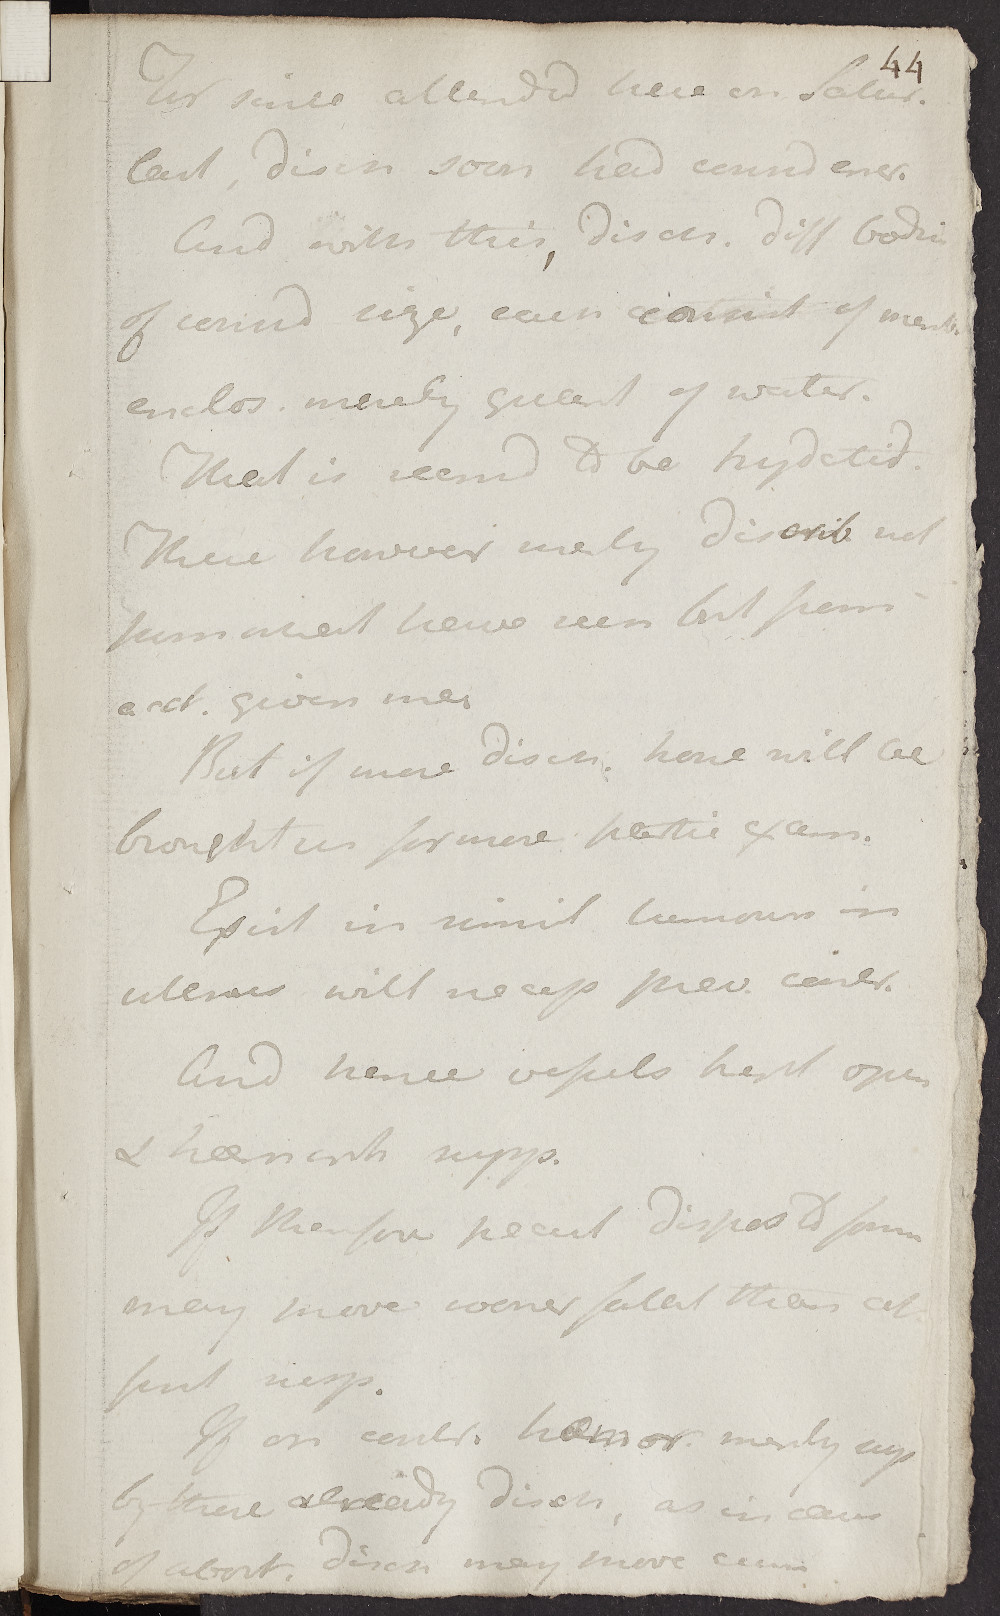 44
For since attended here on Satur.
last, disch soon had consid ener.
And with this, disch. diff bodies
of consid size, each consist of memb.
enclos. merely quant of water.
That is seemd to be hydatid.
These however merely describ not
from what have seen but from
acct. given me
But if more disch. hope will be
brought us for more partic exam.
Exist in simil humours in
uterus will necess prev. contr.
And hence vessels kept open
& haemorrh supp.
If therefore recent dispos to form
may prove sooner fatal than at
first susp.
If on contr. haemor. merely supp
by these already disch, as in case
of abort. disch may prove